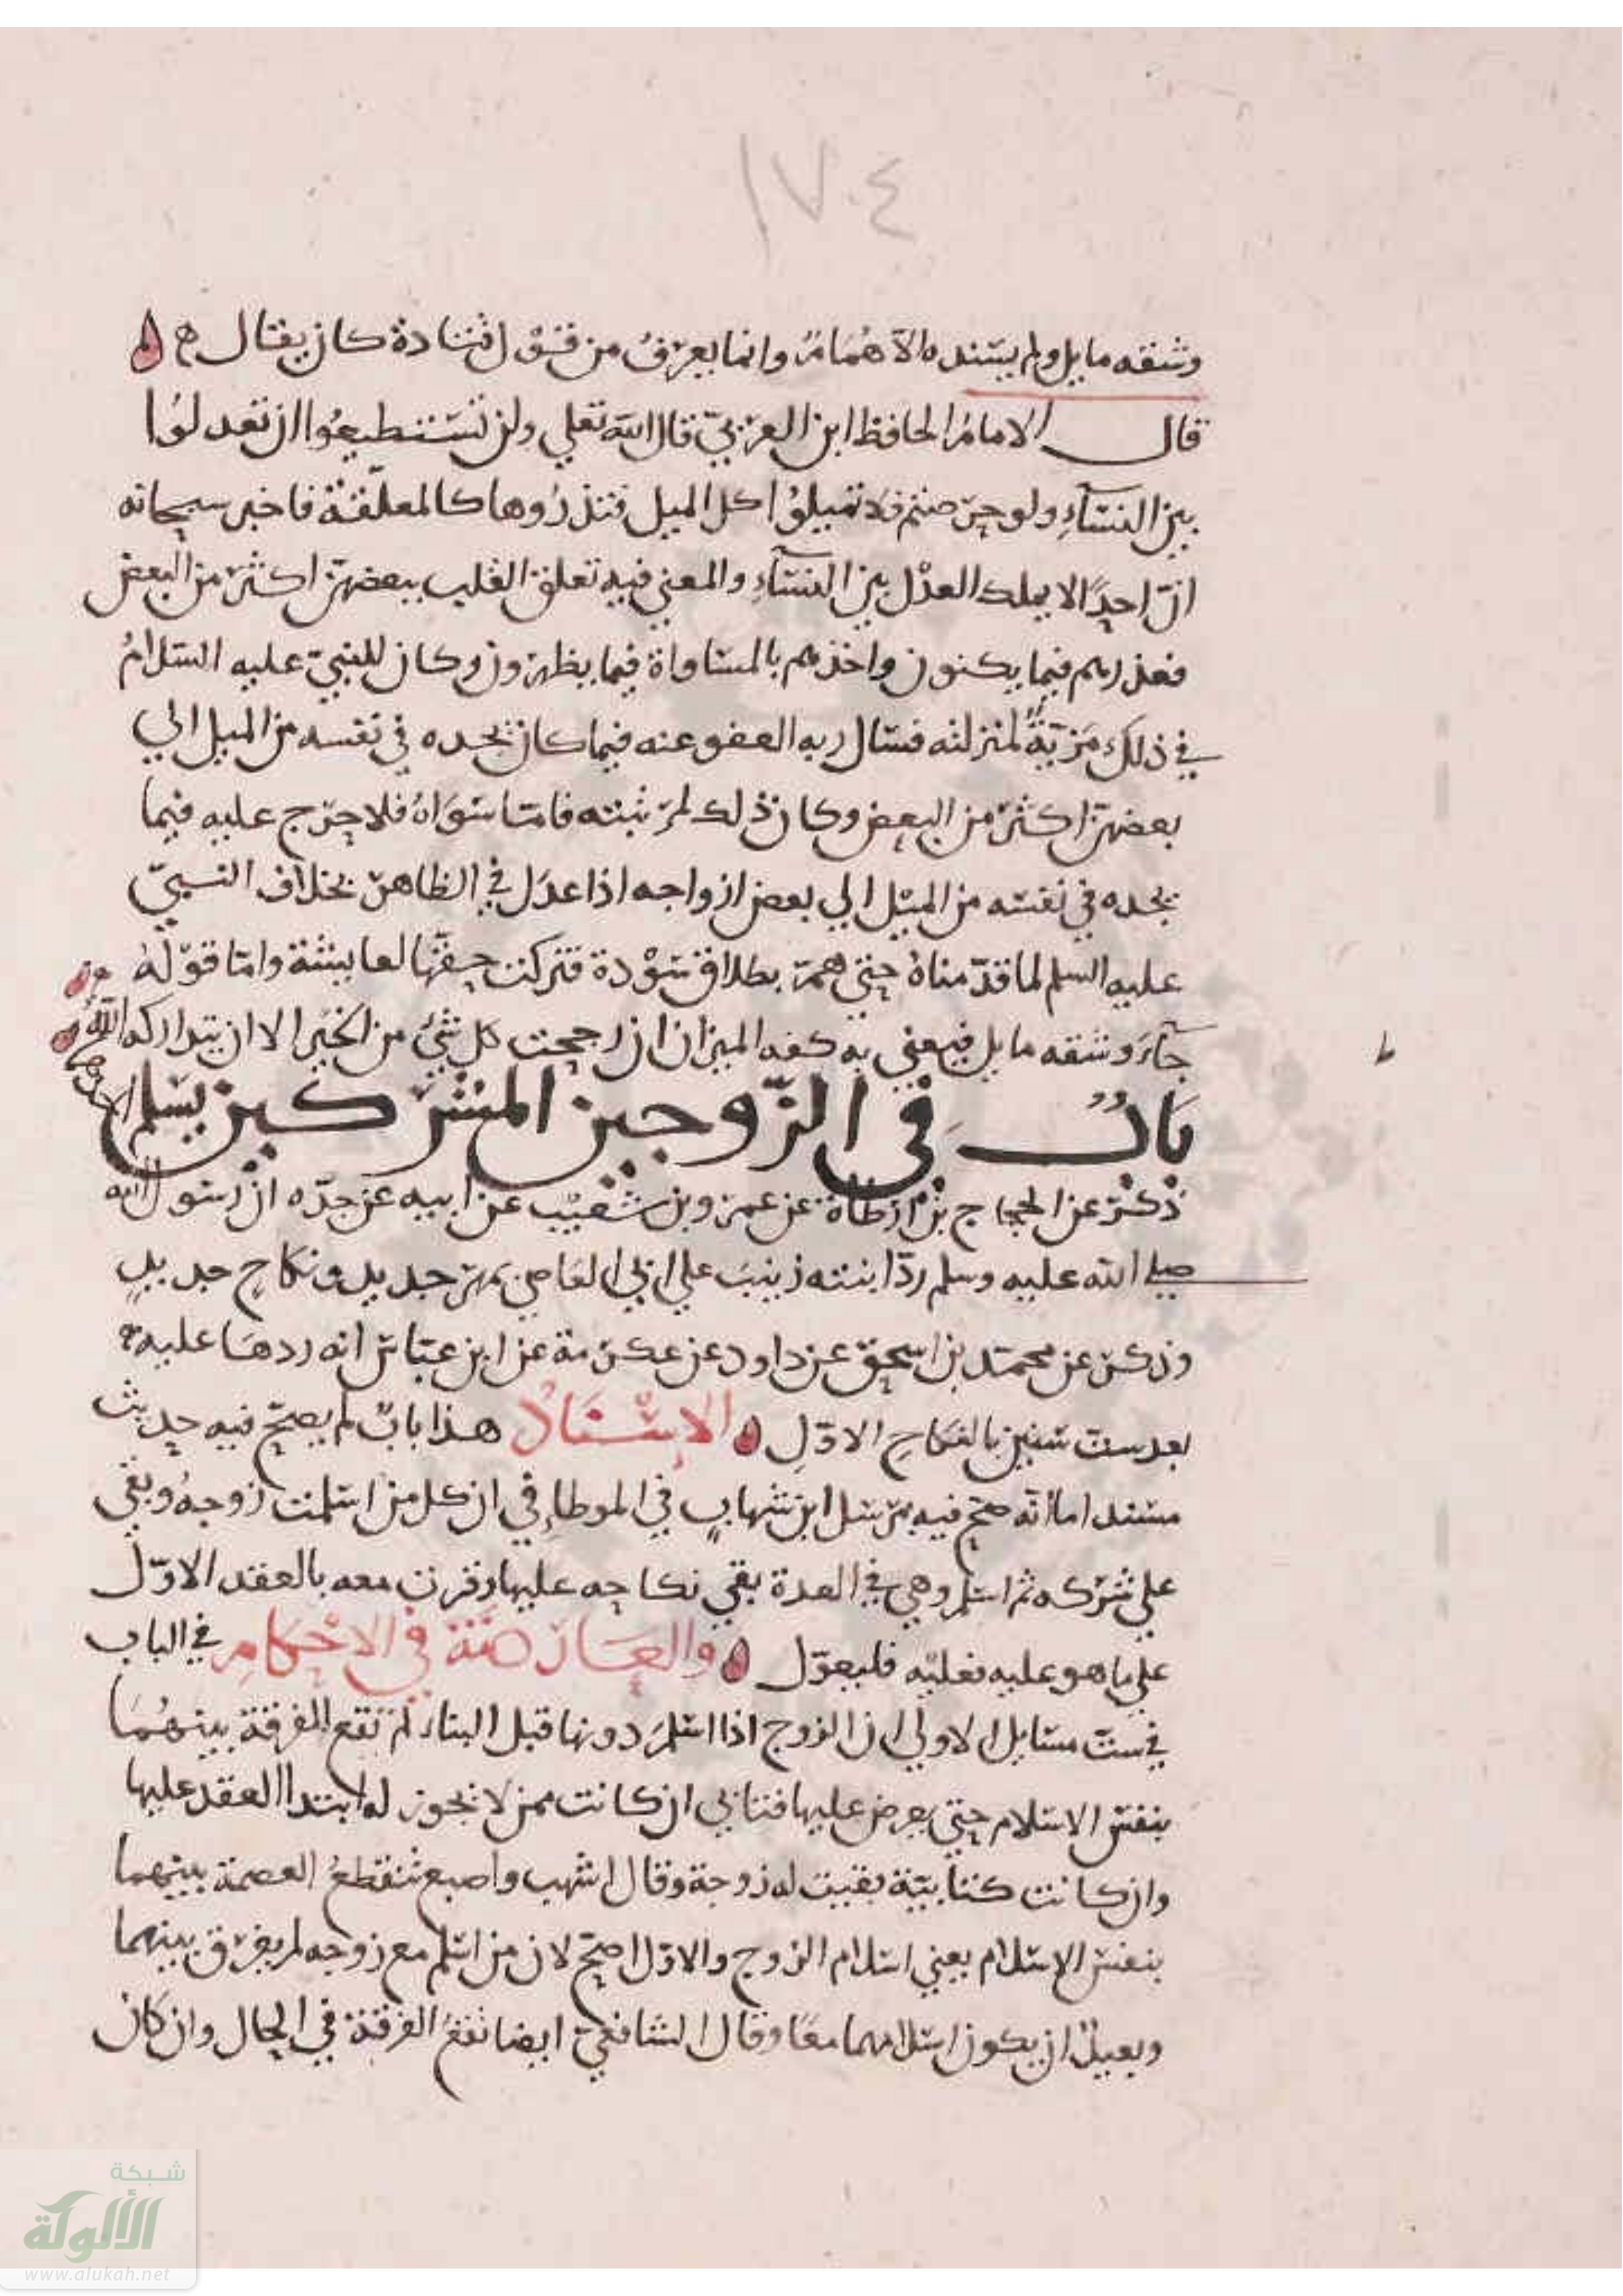 ١٧٠٤
وشقه مايل ولم يسنده الا همام وانما يعرف من قول قتادة كان يقال ه
قال الامام الحافظ ابن العربي قال الله تعلي ولن تستطيعوا ان تعدلوا
بين النساء ولو حرصتم فلا تميلوا كل الميل فتذروها كالمعلقة فاخبر سبحانه
ان احدا لا يملك العدل بين النساء والمعني فيه تعلق القلب ببعضهن اكثر من البعض
فعذرهم فيما يكنون واخذهم بالمساواة فيما يظهرون وكان للنبي عليه السلام
في ذلك مزية لمنزلته فسال ربه العفو عنه فيما كان يجده في نفسه من الميل الي
بعضهن اكثر من البعض وكان ذلك لمرتبته فاما سواه فلا حرج عليه فيما
يجده في نفسه من الميل الي بعض ازواجه اذا عدل في الظاهر بخلاف النبي
عليه السلم لما قدمناه حتي هم بطلاق سودة فتركت حقها لعايشة واما قوله
جاء وشقه مايل فيعني به كفه الميزان ان رجحت كل شي من الخير الا ان يتداركه الله
باب في الزوجين المشركين يسلم احدهما
ذكر عن الحجاج بن ارطاة عن عمرو بن شعيب عن ابيه عن جده ان رسول الله
صلي الله عليه وسلم رد ابنته زينب علي ابي العاصي بمهر جديد ونكاح جديد
وذكر عن محمد بن اسحق عن داود عن عكرمة عن ابن عباس انه ردها عليه
بعد ست سنين بالنكاح الاول الاسناد هذا باب لم يصح فيه حديث
مسند اما انه صح فيه مرسل ابن شهاب في الموطا في ان كل من اسلمت زوجه وبقي
علي شركه ثم اسلم وهي في العدة بقي نكاحه عليها وقرت معه بالعقد الاول
علي ما هو عليه فعليه فليعول والعارضة في الاحكام في الباب
في ست مسايل الاولي ان الزوج اذا اسلم دونها قبل البناء لم تقع الفرقة بينهما
بنفس الاسلام حتي يعرض عليها فتابي ان كانت ممن لا يجوز له ابتدا العقد عليها
وان كانت كتابية بقيت له زوجة وقال اشهب واصبغ تنقطع العصمة بينهما
بنفس الاسلام يعني اسلام الزوج والاول اصح لان من اسلم مع زوجه لم يفرق بينهما
وبعيد ان يكون اسلامهما معا وقال الشافعي ايضا تقع الفرقة في الحال وان كان
ط
شبكة
الألوكة
www.alukah.net